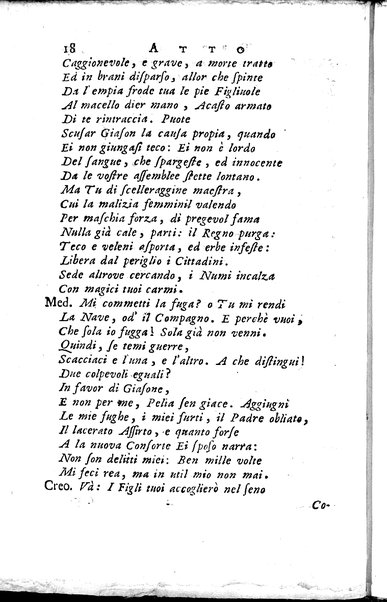 18 ATTO
Caggionevole, e grave, a morte tratto
Ed in brani disparso, allor che spinte
Da l'empia frode tua le pie Figliuole
Al macello dier mano, Acasto armato
Di te rintraccia. Puote
Scusar Giason la causa propia, quando
Ei non giungasi teco: Ei non è lordo
Del sangue, che spargeste, ed innocente
Da le vostre assemblee stette lontano.
Ma Tu di scelleraggine maestra,
Cui la malizia femminil valendo
Per maschia forza, di pregevol fama
Nulla già cale, parti: il Regno purga:
Teco e veleni asporta, ed erbe infeste:
Libera dal periglio i Cittadini.
Sede altrove cercando, i Numi incalza
Con magici tuoi carmi.
Med. Mi commetti la fuga? o Tu mi rendi
La Nave, od' il Compagno. E perchè vuoi,
Che sola io fugga! Sola già non venni.
Quindi, se temi guerre,
Scacciaci e l'una, e l'altro. A che distingui!
Due colpevoli eguali?
In favor di Giasone,
E non per me, Pelia sen giace. Aggiugni
Le mie fughe, i miei furti, il Padre obliato,
Il lacerato Assirto, e quanto forse
A la nuova Consorte Ei sposo narra:
Non son delitti miei: Ben mille volte
Mi feci rea, ma in util mio non mai.
Creo. Và: I Figli tuoi accoglierò nel seno
Co-